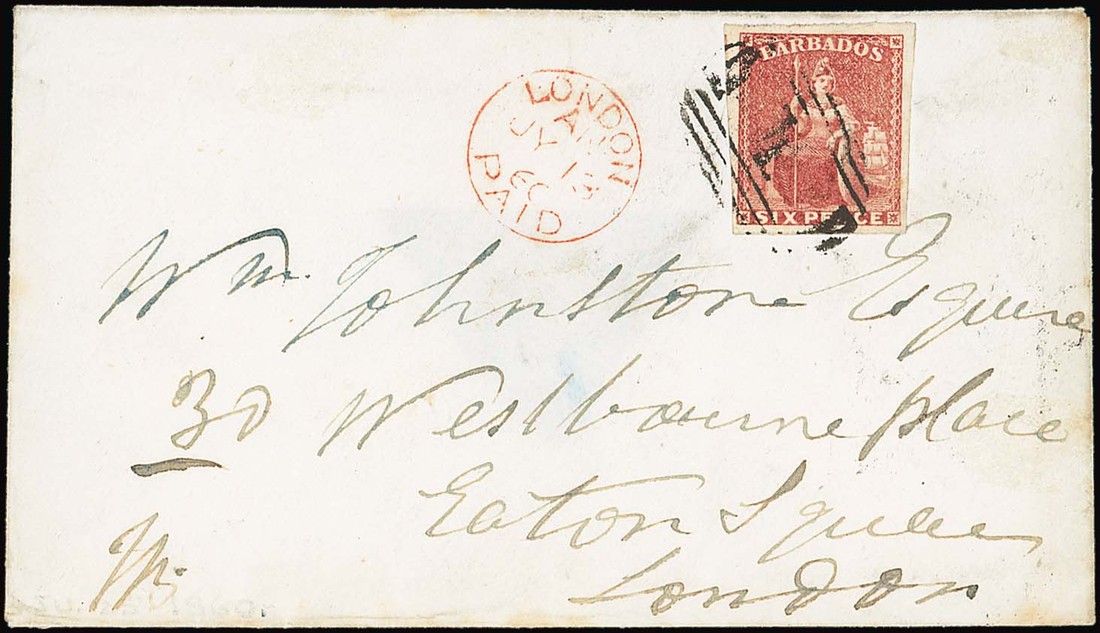 LONDON
A
JY 13
60
PAID
BARBADOS
1
SIX PENCE
Wm. Johnstone Esquire
30 Westbourne place
Eaton Square
London